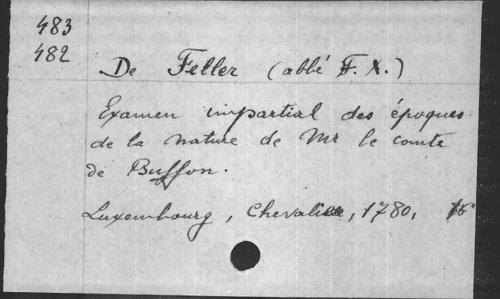 483
482
De Feller (abbé F. X.)
Examen impartial des époques
de la nature de Mr le comte
de Buffon.
Luxembourg, Chevalier, 1780,